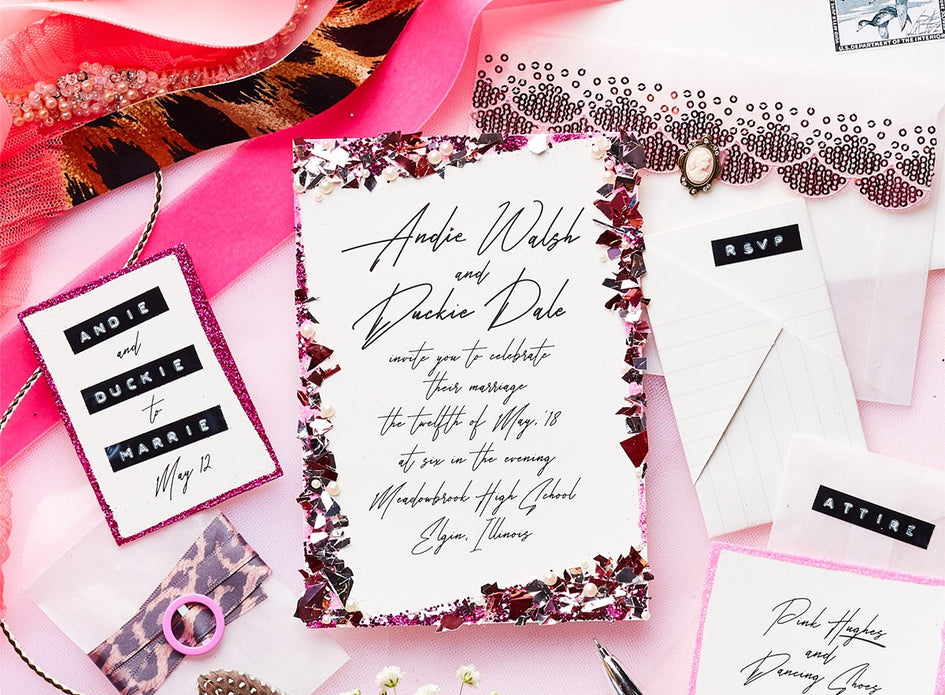 U.S. DEPARTMENT OF THE INTERIOR
Andie Walsh
and
Duckie Dale
invite you to celebrate
their marriage
the twelfth of May, '18
at six in the evening
Meadowbrook High School
Elgin, Illinois
ANDIE
and
DUCKIE
to
MARRIE
May 12
RSVP
ATTIRE
Pink Hughes
and
Dancing Shoes